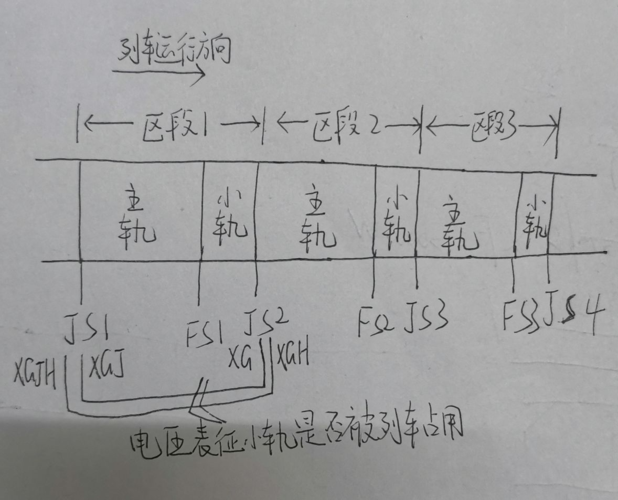 列车运行方向
区段1 区段2 区段3
主轨 小轨 主轨 小轨 主轨 小轨
JS1 FS1 JS2 FS2 JS3 FS3 JS4
XGJH XGJ XG XGH
电压表征小轨是否被列车占用